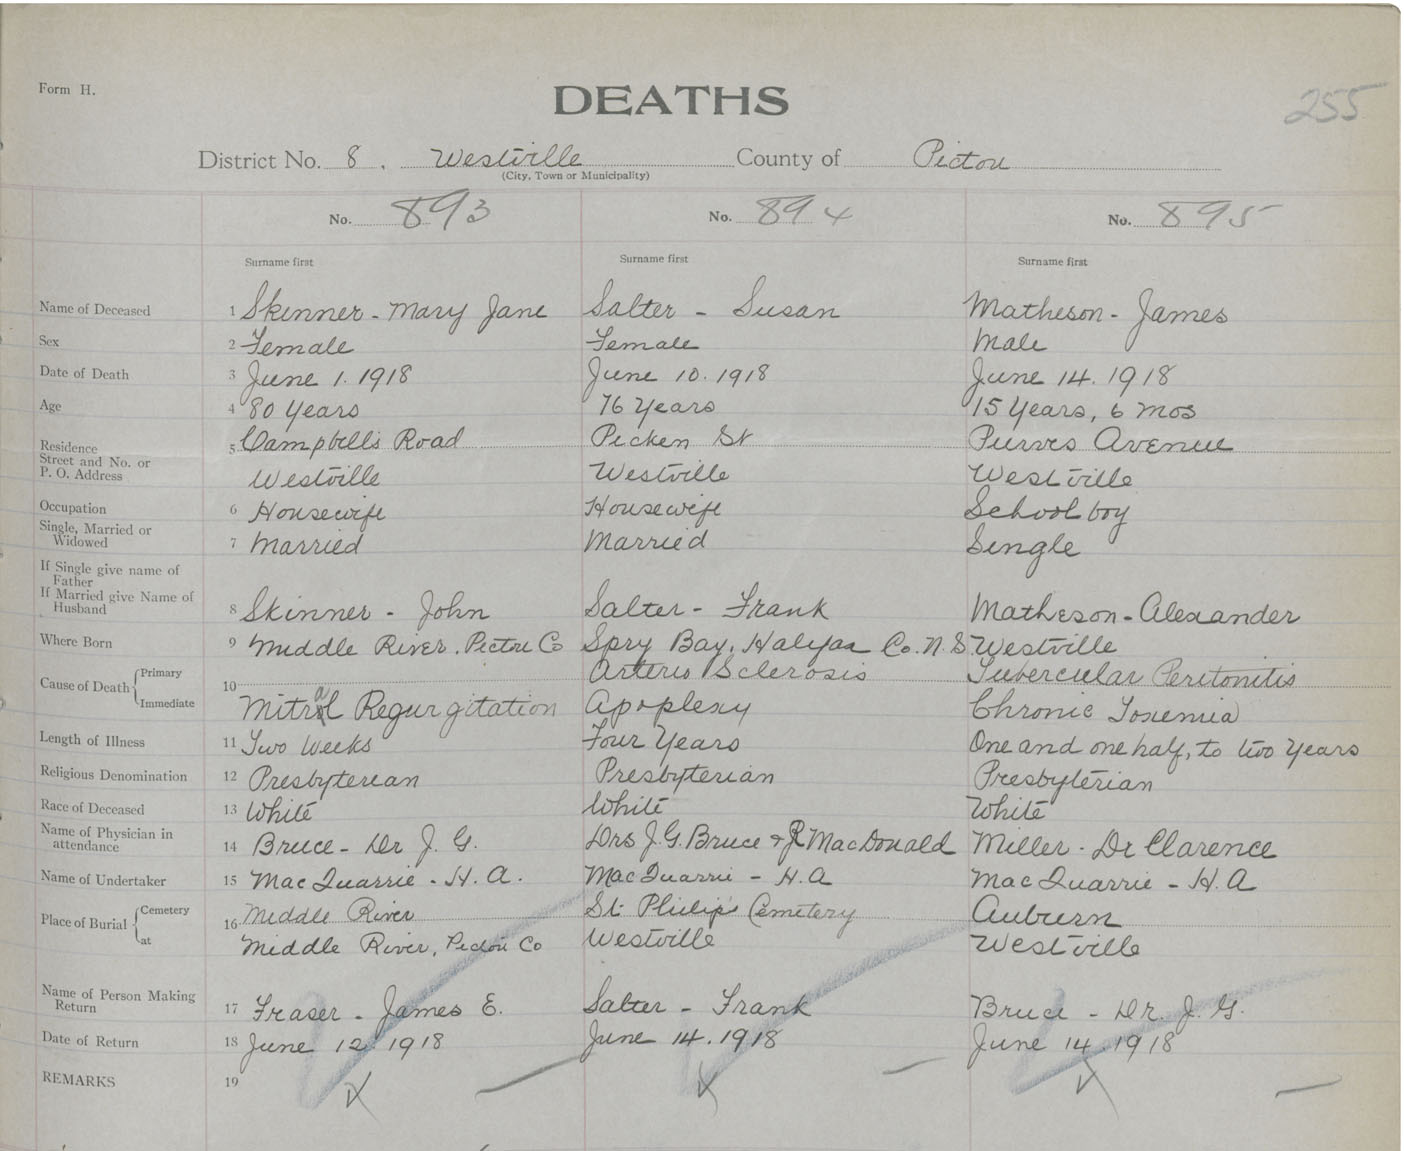 Form H.
DEATHS
255
District No. 8. Westville County of Pictou
(City, Town or Municipality)
No. 893 No. 894 No. 895
Surname first Surname first Surname first
Name of Deceased 1 Skinner - Mary Jane Salter - Susan Matheson - James
Sex 2 Female Female Male
Date of Death 3 June 1. 1918 June 10. 1918 June 14. 1918
Age 4 80 Years 76 Years 15 Years, 6 mos
Residence
Street and No. or
P. O. Address
5 Campbells Road Picken St Purves Avenue
Westville Westville Westville
Occupation 6 Housewife Housewife Schoolboy
Single, Married or
Widowed
7 Married Married Single
If Single give name of
Father
If Married give Name of
Husband
8 Skinner - John Salter - Frank Matheson - Alexander
Where Born 9 Middle River. Pictou Co Spry Bay, Halifax Co. N. S. Westville
Cause of Death Primary 10 Arterio Sclerosis Tubercular Peritonitis
Immediate Mitral Regurgitation Apoplexy Chronic Toxemia
Length of Illness 11 Two Weeks Four Years One and one half, to two years
Religious Denomination 12 Presbyterian Presbyterian Presbyterian
Race of Deceased 13 White White White
Name of Physician in
attendance
14 Bruce - Dr J. G. Drs J. G. Bruce & R MacDonald Miller - Dr Clarence
Name of Undertaker 15 MacQuarrie - H. A. MacQuarrie - H. A MacQuarrie - H. A
Place of Burial Cemetery 16 Middle River St. Philip's Cemetery Auburn
at Middle River, Pictou Co Westville Westville
Name of Person Making
Return
17 Fraser - James E. Salter - Frank Bruce - Dr. J. G.
Date of Return 18 June 12. 1918 June 14. 1918 June 14. 1918
REMARKS 19